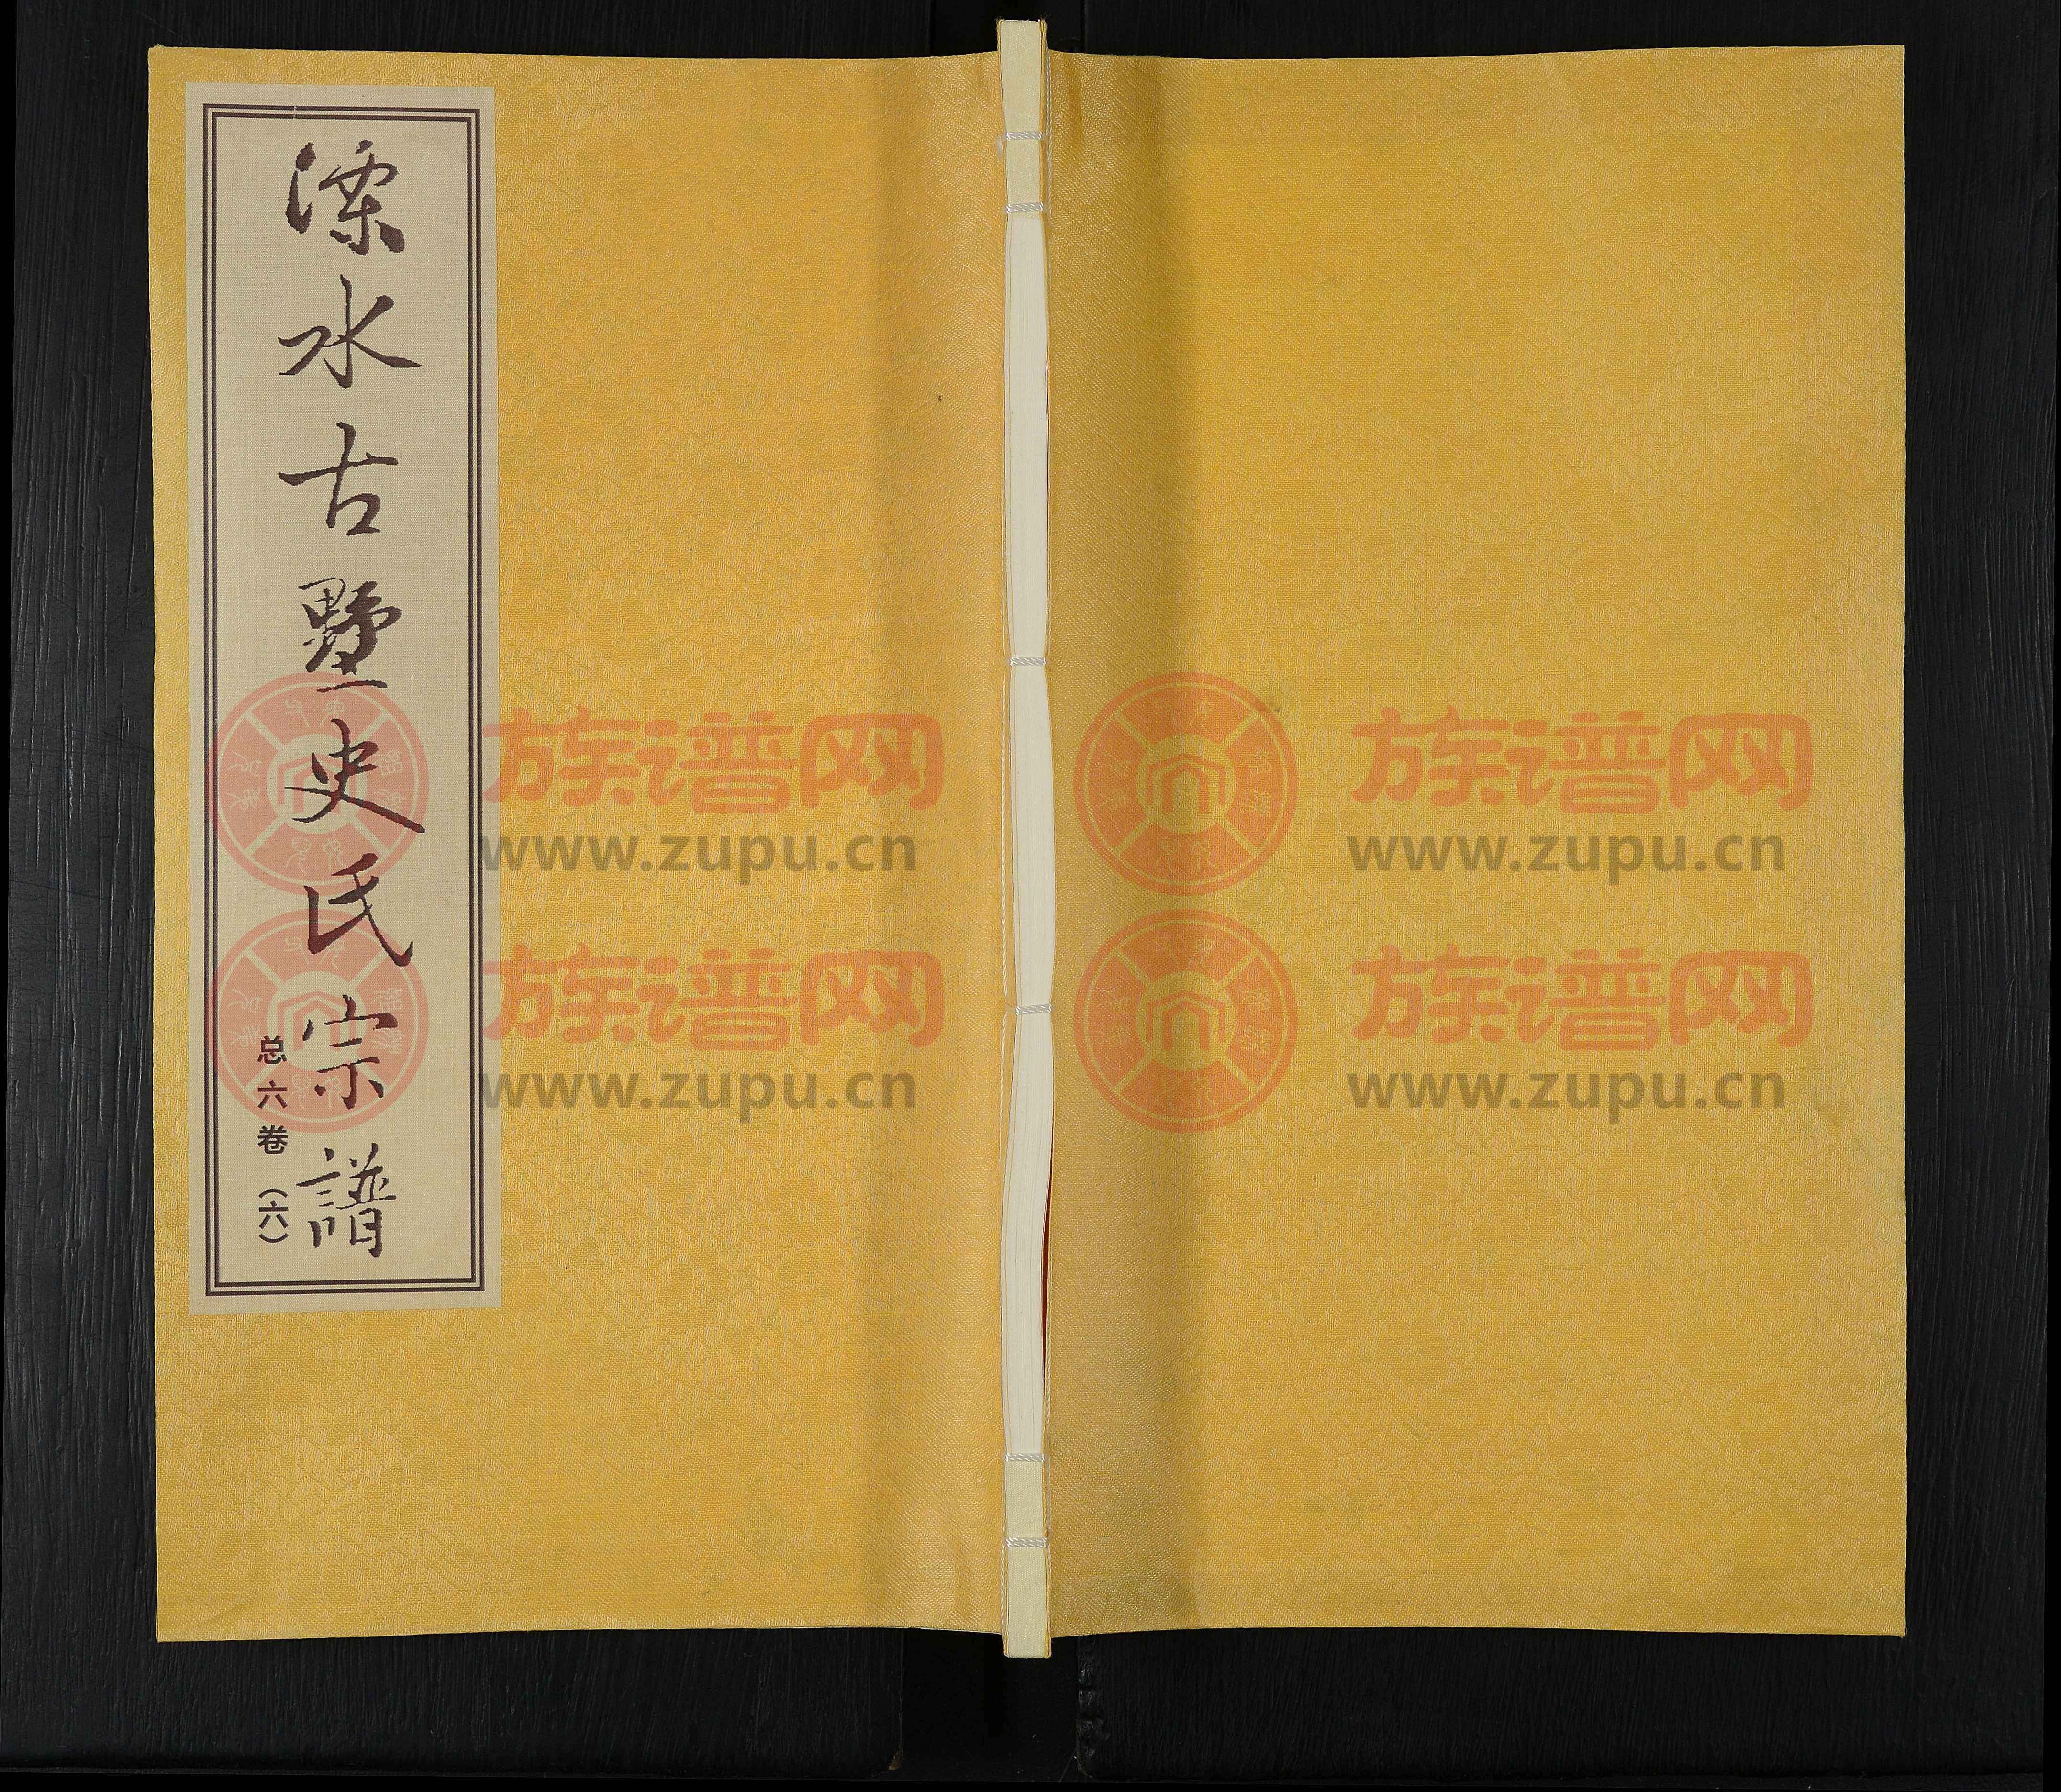 溧水古墅史氏宗譜
总六卷（六）
族谱网
www.zupu.cn
族谱网
www.zupu.cn
族谱网
www.zupu.cn
族谱网
www.zupu.cn